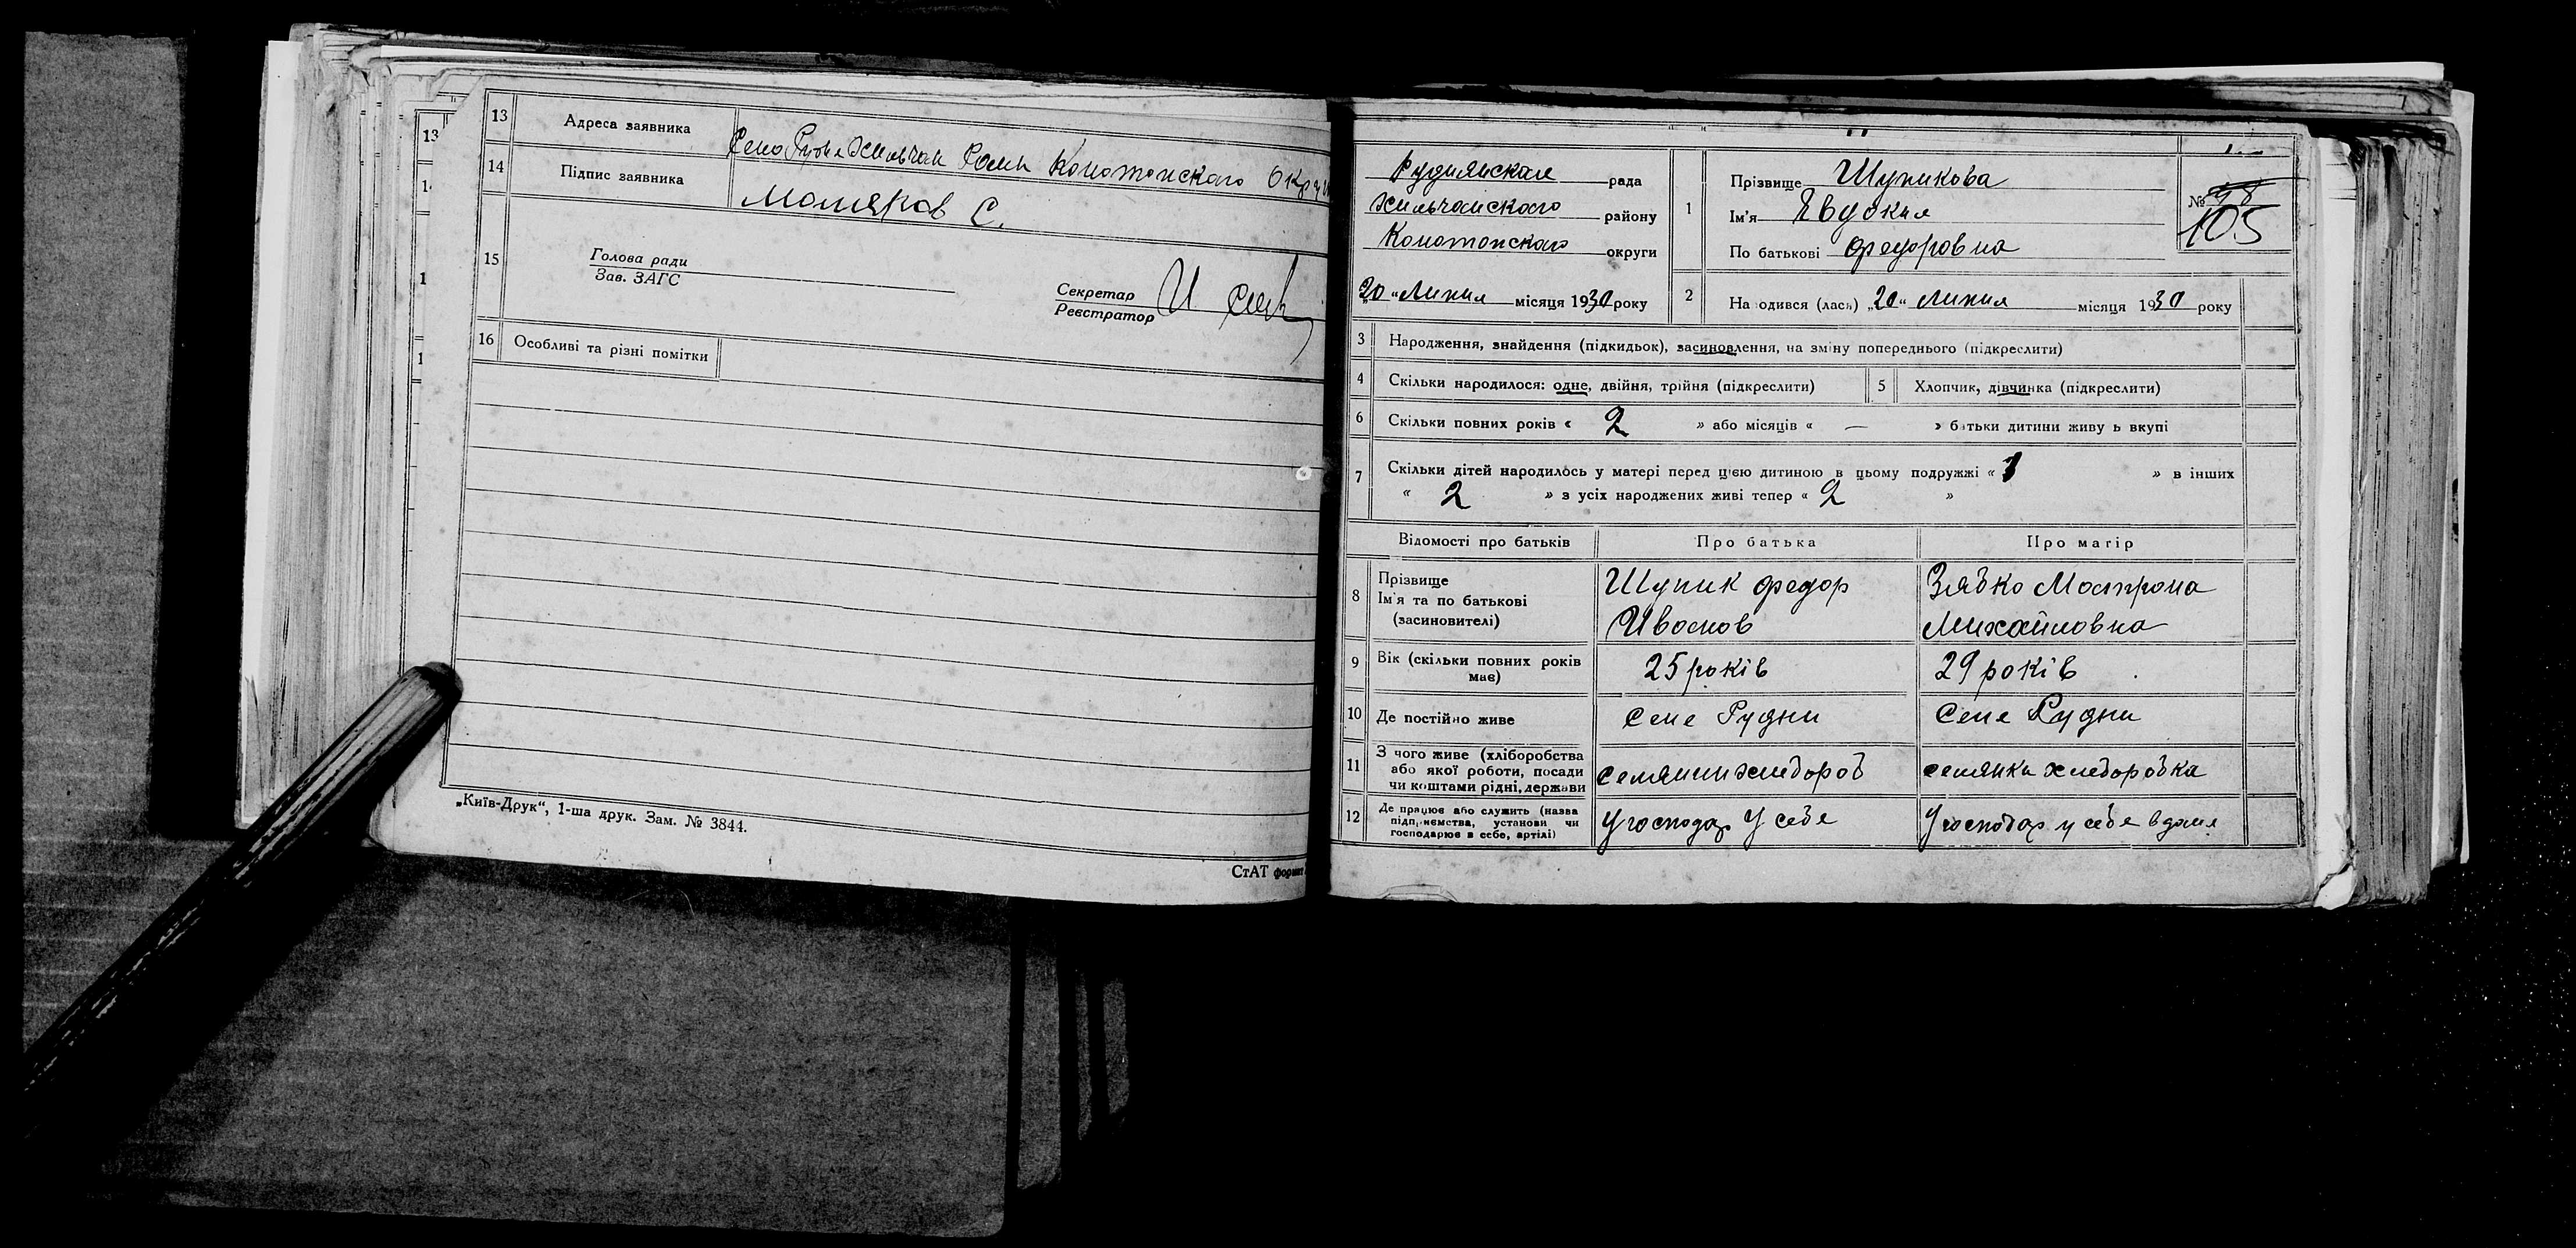 13 Адреса заявника Село Рудня Хильчан Раин Конотопского Округ
14 Підпис заявника Моляров С.
15 Голова ради
Зав. ЗАГС
Секретар
Реєстратор
16 Особливі та різні помітки
„Київ-Друк“, 1-ша друк. Зам. № 3844.
СтАТ формат
Руднянская рада
Хильчанского району
Конотопского округи
„20“ Липня місяця 1930 року
1 Прізвище Шупикова
Ім'я Явдокия
По батькові Федоровна
№ 98
105
2 На одився (лась) „20“ Липня місяця 1930 року
3 Народження, знайдення (підкидьок), засиновлення, на зміну попереднього (підкреслити)
4 Скільки народилося: одне, двійня, трійня (підкреслити) 5 Хлопчик, дівчинка (підкреслити)
6 Скільки повних років « 2 » або місяців « — » батьки дитини живу ь вкупі
7 Скільки дітей народилось у матері перед цією дитиною в цьому подружжі « 1 » в інших
« 2 » з усіх народжених живі тепер « 2 »
Відомості про батьків Про батька Про матір
8 Прізвище
Ім'я та по батькові
(засиновителі)
Шупик Федор
Иванов
Зябко Мотрона
Михайловна
9 Вік (скільки повних років має) 25 років 29 років
10 Де постійно живе Селе Рудни Селе Рудни
11 З чого живе (хліборобства
або якої роботи, посади
чи коштами рідні, держави
селянин хлебороб селянка хлеборобка
12 Де працює або служить (назва
підприємства, установи чи
господарює в себе, артілі)
У господар У себе У господар у себе вдома